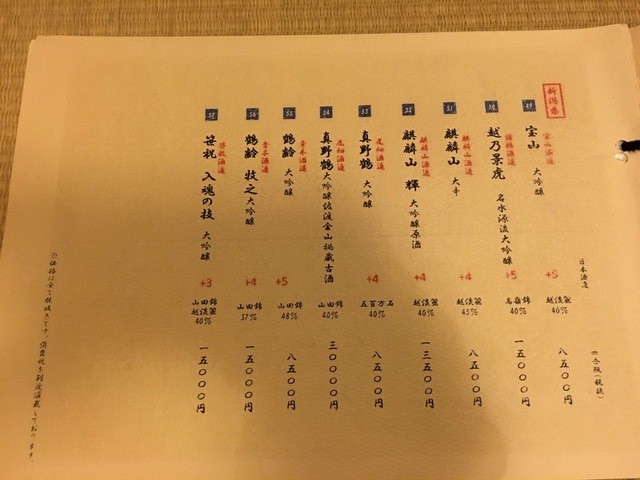 新潟県
29
宝山酒造
宝山 大吟醸
+5
越淡麗
40%
八五〇〇円
30
諸橋酒造
越乃景虎 名水源流大吟醸
+5
高嶺錦
40%
一五〇〇〇円
31
麒麟山酒造
麒麟山
+4
越淡麗
45%
八五〇〇円
32
麒麟山酒造
麒麟山 輝 大吟醸原酒
+4
越淡麗
40%
一三五〇〇円
33
尾畑酒造
真野鶴 大吟醸
+4
五百万石
40%
八五〇〇円
34
尾畑酒造
真野鶴 大吟醸佐渡金山掲蔵古酒
山田錦
40%
三〇〇〇〇円
35
青木酒造
鶴齢 大吟醸
+5
山田錦
48%
八五〇〇円
36
青木酒造
鶴齢 牧之 大吟醸
+4
山田錦
37%
一五〇〇〇円
37
笹祝酒造
笹祝 入魂の技 大吟醸
+3
山田錦
越淡麗
40%
一五〇〇〇円
日本酒造
四合瓶(税抜)
◎価格は全て税抜きです。消費税を別途頂戴しております。